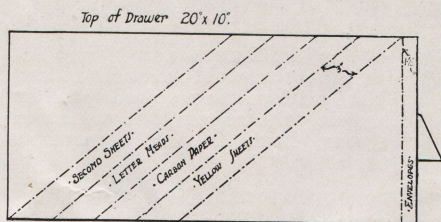 Top of Drawer 20"x 10".
SECOND SHEETS.
LETTER HEADS.
CARBON PAPER.
YELLOW SHEETS.
ENVELOPES.